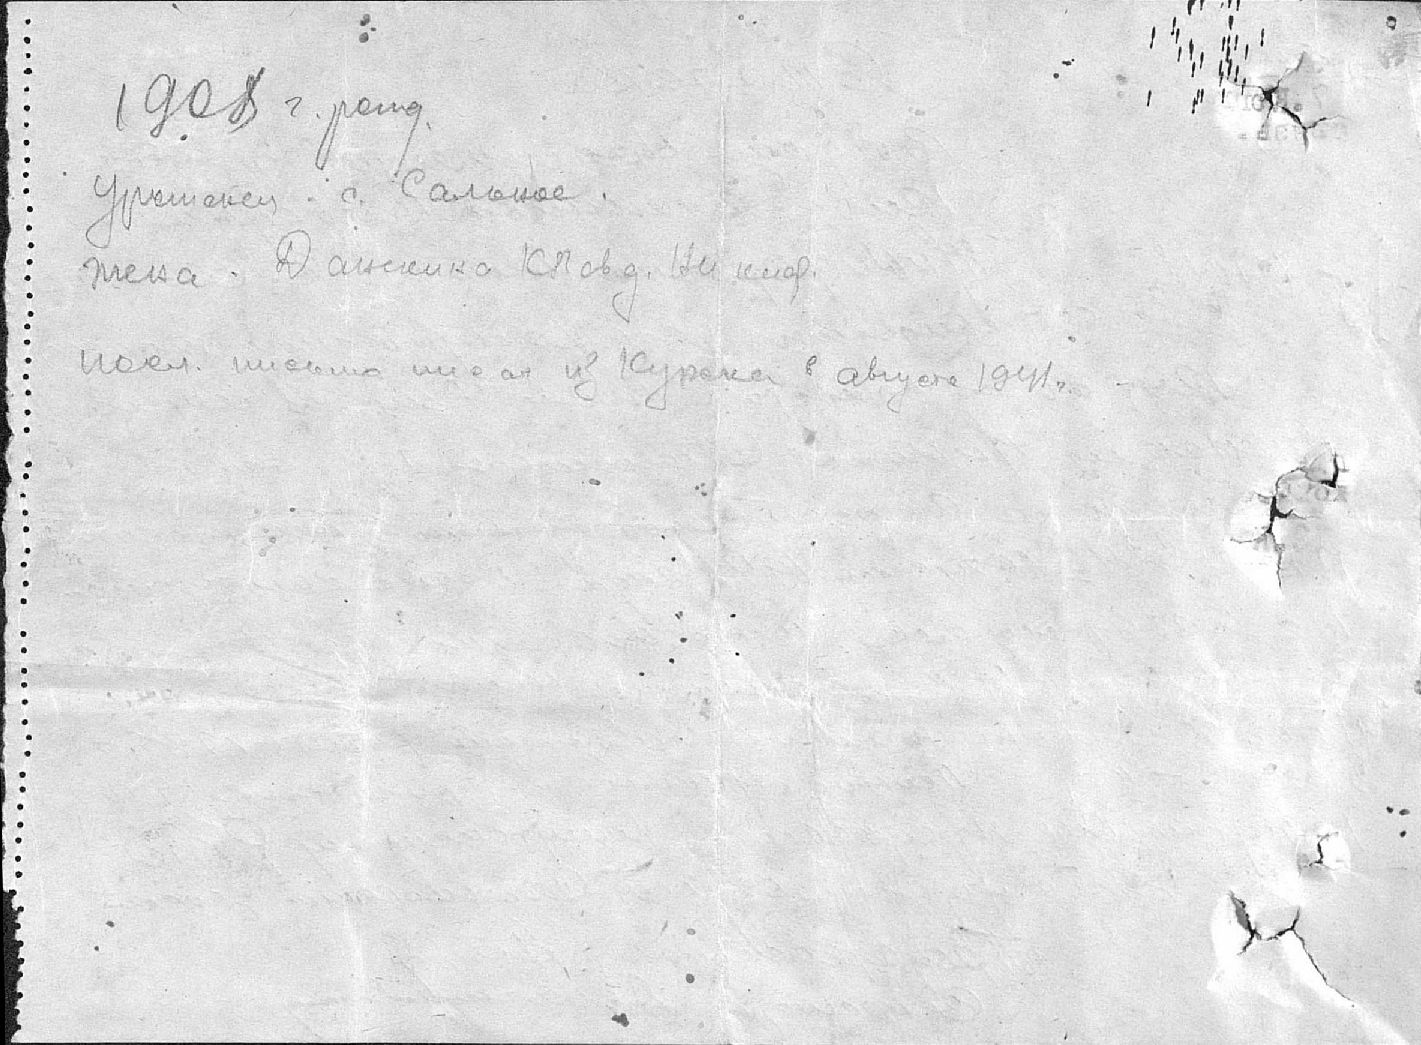 1908 г. рожд.
Уроженец с. Сальное.
жена. Данскина Клавд. Никиф.
посл. письмо писал из Курска в августе 1941 г.